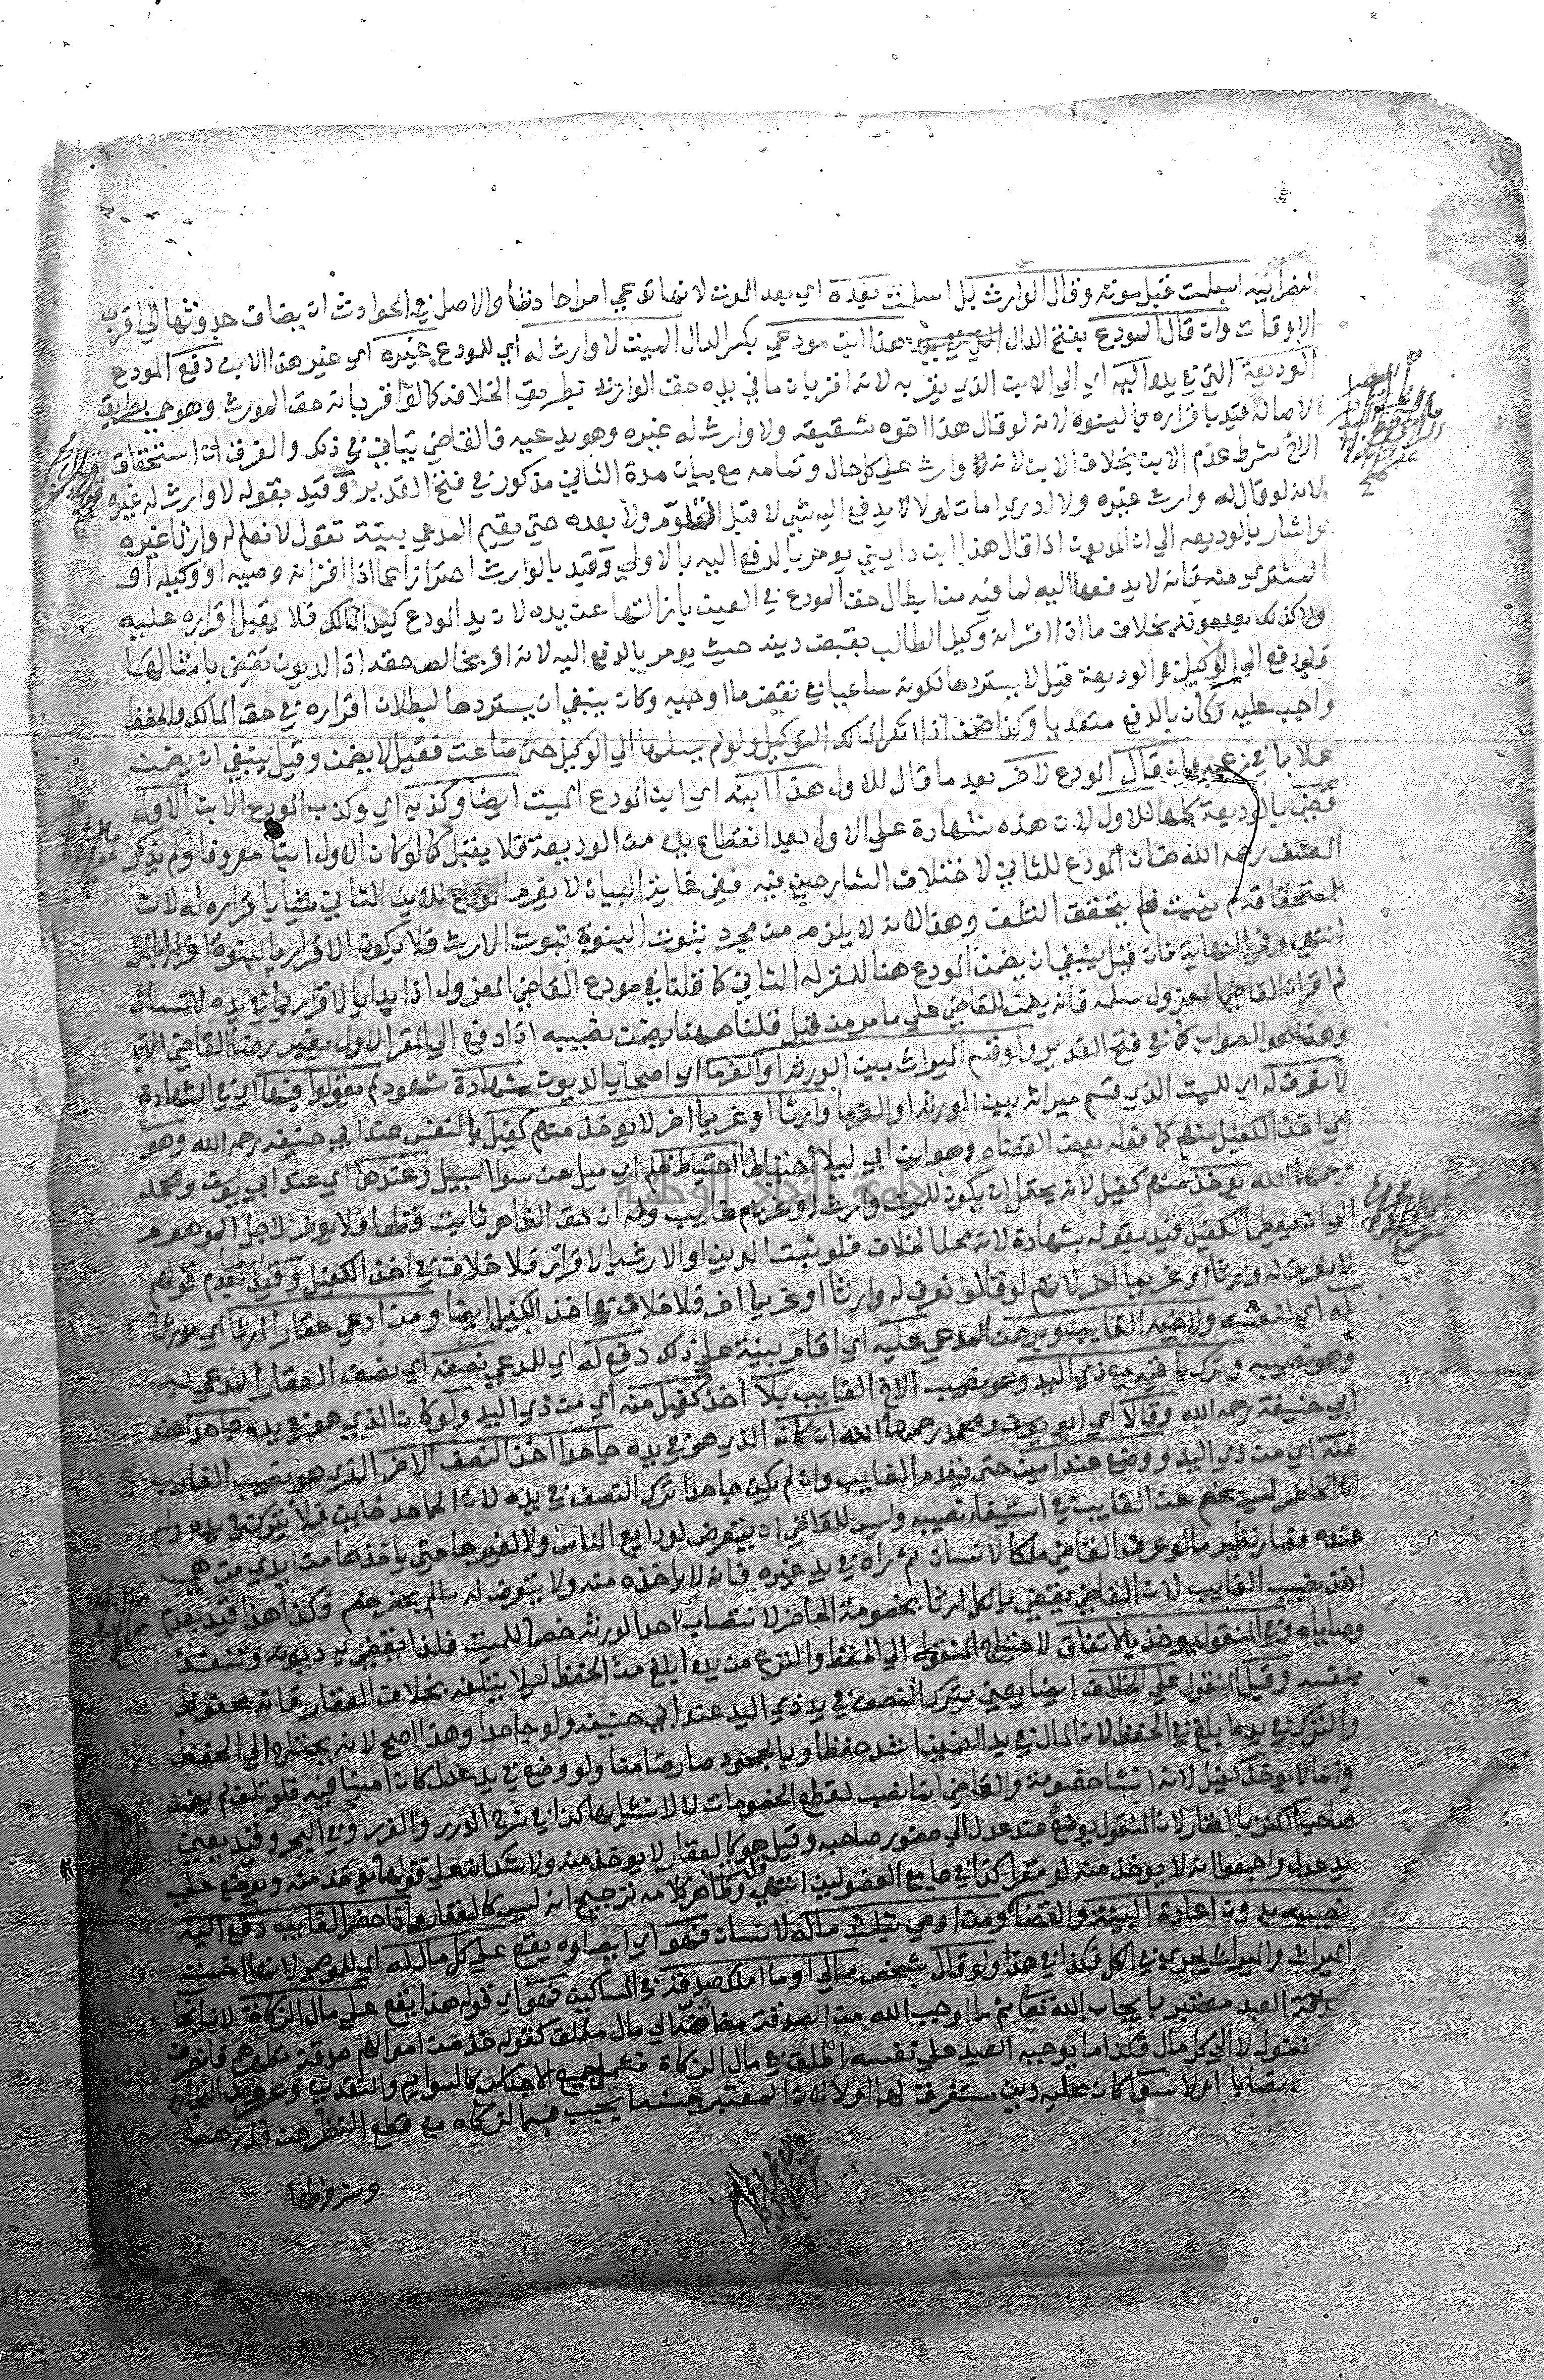 النصرانية اسلمت قبل موته وقال الوارث بل اسلمت بعده اي بعد الموت لانها تدعي امرا حادثا والاصل في الحوادث ان يضاف حدوثها الي اقرب
الاوقات وان قال المودع بفتح الدال هذا ابن مودعي بكسر الدال الميت لا وارث له اي للمودع غيره اي غير هذا الابن دفع المودع
الوديعة التي في يده اليه اي الي الابن الذي يقر به لانه اقر بان ما في يده حق الوارث بطريق الخلافة كما لو اقر بانه حق المورث وهو حي بطريق
الاصالة قيد باقراره بالبنوة لانه لو قال هذا اخوه شقيقه ولا وارث له غيره وهو يدعيه فالقاضي يتاني في ذلك والفرق ان استحقاق
الاخ بشرط عدم الابن بخلاف الابن لانه وارث علي كل حال وتمامه مع بيان مدة التاني مذكور في فتح القدير وقيد بقوله لا وارث له غيره
لانه لو قال له وارث غيره ولا ادري امات ام لا لا يدفع اليه شي لا قبل التلوم ولا بعده حتي يقيم المدعي بينة تقول لا نعلم له وارثا غيره
واشار بالوديعة الي ان المديون اذا قال هذا ابن دايني يومر بالدفع اليه بالاولي وقيد بالوارث احترازا عما اذا اقر انه وصيه او وكيله او
المشتري منه فانه لا يدفعها اليه لما فيه من ابطال حق المودع في العين بازالتها عن يده لان يد المودع كيد المالك فلا يقبل اقراره عليه
ولا كذلك بعد موته بخلاف ما اذا اقر انه وكيل الطالب بقبض دينه حيث يومر بالدفع اليه لانه اقر بخالص حقه اذ الديون تقضي بامثالها
فلو دفع الي الوكيل في الوديعة قيل لا يستردها لكونه ساعيا في نقض ما اوجبه وكان ينبغي ان يستردها لبطلان اقراره في حق المالك والحفظ
واجب عليه فكان بالدفع متعديا وكذا ضمن اذا انكر المالك التوكيل ولو لم يسلمها الي الوكيل حتي ضاعت فقيل لا يضمن وقيل ينبغي ان يضمن
عملا بما في زعمه وان قال المودع لاخر بعد ما قال للاول هذا ابنه اي ابن المودع الميت ايضا وكذبه اي وكذب المودع الابن الاول
قضي بالوديعة كلها للاول لان هذه شهادة علي الاول بعد انقطاع يده من الوديعة فلا يقبل كما لو كان الاول ابنا معروفا ولم يذكر
المصنف رحمه الله ضمان المودع للثاني لاختلاف الشارحين فيه ففي غاية البيان لا يغرم المودع للابن الثاني شيا باقراره له لان
استحقاقه لم يثبت فلم يتحقق التلف وهذا لانه لا يلزم من مجرد ثبوت البنوة ثبوت الارث فلا يكون الاقرار بالبنوة اقرارا بالمال
انتهي وفي النهاية فان قيل ينبغي ان يضمن المودع هنا للمقر له الثاني كما قلنا في مودع القاضي المعزول اذا بدا بالاقرار بما في يده لانسان
ثم اقر ان القاضي المعزول سلمه فانه يضمن للقاضي علي ما مر من قبل قلنا ههنا يضمن نصيبه اذا دفع الي المقر الاول بغير رضا القاضي انتهي
وهذا هو الصواب كما في فتح القدير ولو قسم الميراث بين الورثة او الغرما اي اصحاب الديون بشهادة شهود لم يقولوا فيها اي في الشهادة
لا نعرف له اي للميت الذي قسم ميراثه بين الورثة او الغرما وارثا او غريما اخر لا يوخذ منهم كفيل بالنفس عند ابي حنيفة رحمه الله وهو
اي اخذ الكفيل منهم كما فعله بعض القضاة وهو ابن ابي ليلا احتياطا احتياط ظلم اي ميل عن سوا السبيل وعندهما اي عند ابي يوسف ومحمد
رحمهما الله يوخذ منهم كفيل لانه يحتمل ان يكون للميت وارث او غريم غايب وله ان حق الحاضر ثابت قطعا فلا يوخر لاجل الموهوم
الي ان يعطي الكفيل قيد بقوله بشهادة لانه محل الخلاف فلو ثبت الدين او الارث بالاقرار فلا خلاف في اخذ الكفيل وقيد بعدم قولهم
لا نعرف له وارثا او غريما اخر لانهم لو قالوا نعرف له وارثا او غريما اخر فلا خلاف في اخذ الكفيل ايضا ومن ادعي عقارا ارثا اي موروثا
له اي لنفسه ولاخيه الغايب وبرهن المدعي عليه اي اقام بينة علي ذلك دفع له اي للمدعي نصفه اي نصف العقار المدعي به
وهو نصيبه وترك باقيه مع ذي اليد وهو نصيب الاخ الغايب بلا اخذ كفيل منه اي من ذي اليد ولو كان الذي هو في يده جاحدا عند
ابي حنيفة رحمه الله وقالا اي ابو يوسف ومحمد رحمهما الله ان كان الذي هو في يده جاحدا اخذ النصف الاخر الذي هو نصيب الغايب
منه اي من ذي اليد ووضع عند امين حتي يقدم الغايب وان لم يكن جاحدا ترك النصف في يده لان الجاحد خاين فلا يترك في يده وله
ان الحاضر ليس بخصم عن الغايب في استيفا نصيبه وليس للقاضي ان يتعرض لودايع الناس ولا لغيرها حتي ياخذها من ايدي من هي
عنده فصار نظير ما لو عرف القاضي ملكا لانسان ثم راه في يد غيره فانه لا ياخذه منه ولا يتعرض له ما لم يحضر خصم فكذا هذا قيد بعدم
اخذ نصيب الغايب لان القاضي يقضي بالكل ارثا بخصومة الحاضر لانتصاب احد الورثة خصما للميت فلذا يقضي به ديونه وتنفذ
وصاياه وفي المنقول يوخذ بالاتفاق لاحتياج المنقول الي الحفظ والنزع من يده ابلغ من الحفظ ليلا يتلفه بخلاف العقار فانه محفوظ
بنفسه وقيل المنقول علي الخلاف ايضا يعني يترك النصف في يد ذي اليد عند ابي حنيفة ولو جاحدا وهذا اصح لانه يحتاج الي الحفظ
والترك في يده ابلغ في الحفظ لان المال في يد الضمين اشد حفظا وبالجحود صار ضامنا ولو وضع في يد عدل كان امينا فيه فلو تلف لم يضمن
وانما لا يوخذ كفيل لانه انشا خصومة والقاضي انما نصب لقطع الخصومات لا لانشايها كذا في شرح الدرر والغرر وفي البحر وقيد يعني
صاحب الكنز بالعقار لان المنقول يوضع عند عدل الي حضور صاحبه وقيل هو كالعقار لا يوخذ منه ولا شك انه علي قولهما يوخذ منه ويوضع علي
يد عدل واجمعوا انه لا يوخذ منه لو مقرا كذا في جامع الفصولين انتهي وظاهر كلامه ترجيح انه ليس كالعقار واذا حضر الغايب دفع اليه
نصيبه بدون اعادة البينة والقضا ومن اوصي بثلث ماله لانسان فهو اي ايصاوه يقع علي كل مال له اي للموصي لانها اخت
الميراث والميراث يجري في الكل فكذا في هذا ولو قال شخص مالي او ما املك صدقة في المساكين فهو اي قوله هذا يقع علي مال الزكاة لان ايجاب
العبد معتبر بايجاب الله تعالي ثم ما اوجب الله من الصدقة مضافة الي مال مطلق كقوله خذ من اموالهم صدقة تطهرهم فانصرف
لفضول لا الي كل مال فكذا ما يوجبه العبد علي نفسه اطلق في مال الزكاة فعم جميع الاجناس كالسوايم والنقدين وعروض التجارة
نصابا ام لا سوا كان عليه دين مستغرق لها ام لا لان المعتبر جنس ما يجب فيه الزكاة مع قطع النظر عن قدرها
وشرايطها